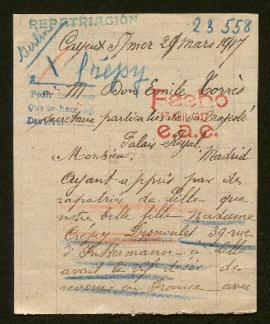 REPATRIACIÓN
23558
Berlin
Cayeux S/mer 29 mars 1917
1 Crépy
A M. Don Emile Torrès
Fecho
secrétaire particulier de sa Majesté
Palais Royal
c.a.c.
Madrid
Monsieur,
Ayant appris par des
rapatriés de Lille que
notre belle fille Madame
Crépy Desmoulet 39 rue
d'Inkermann à Lille
avait le vif désir de
revenir en France avec